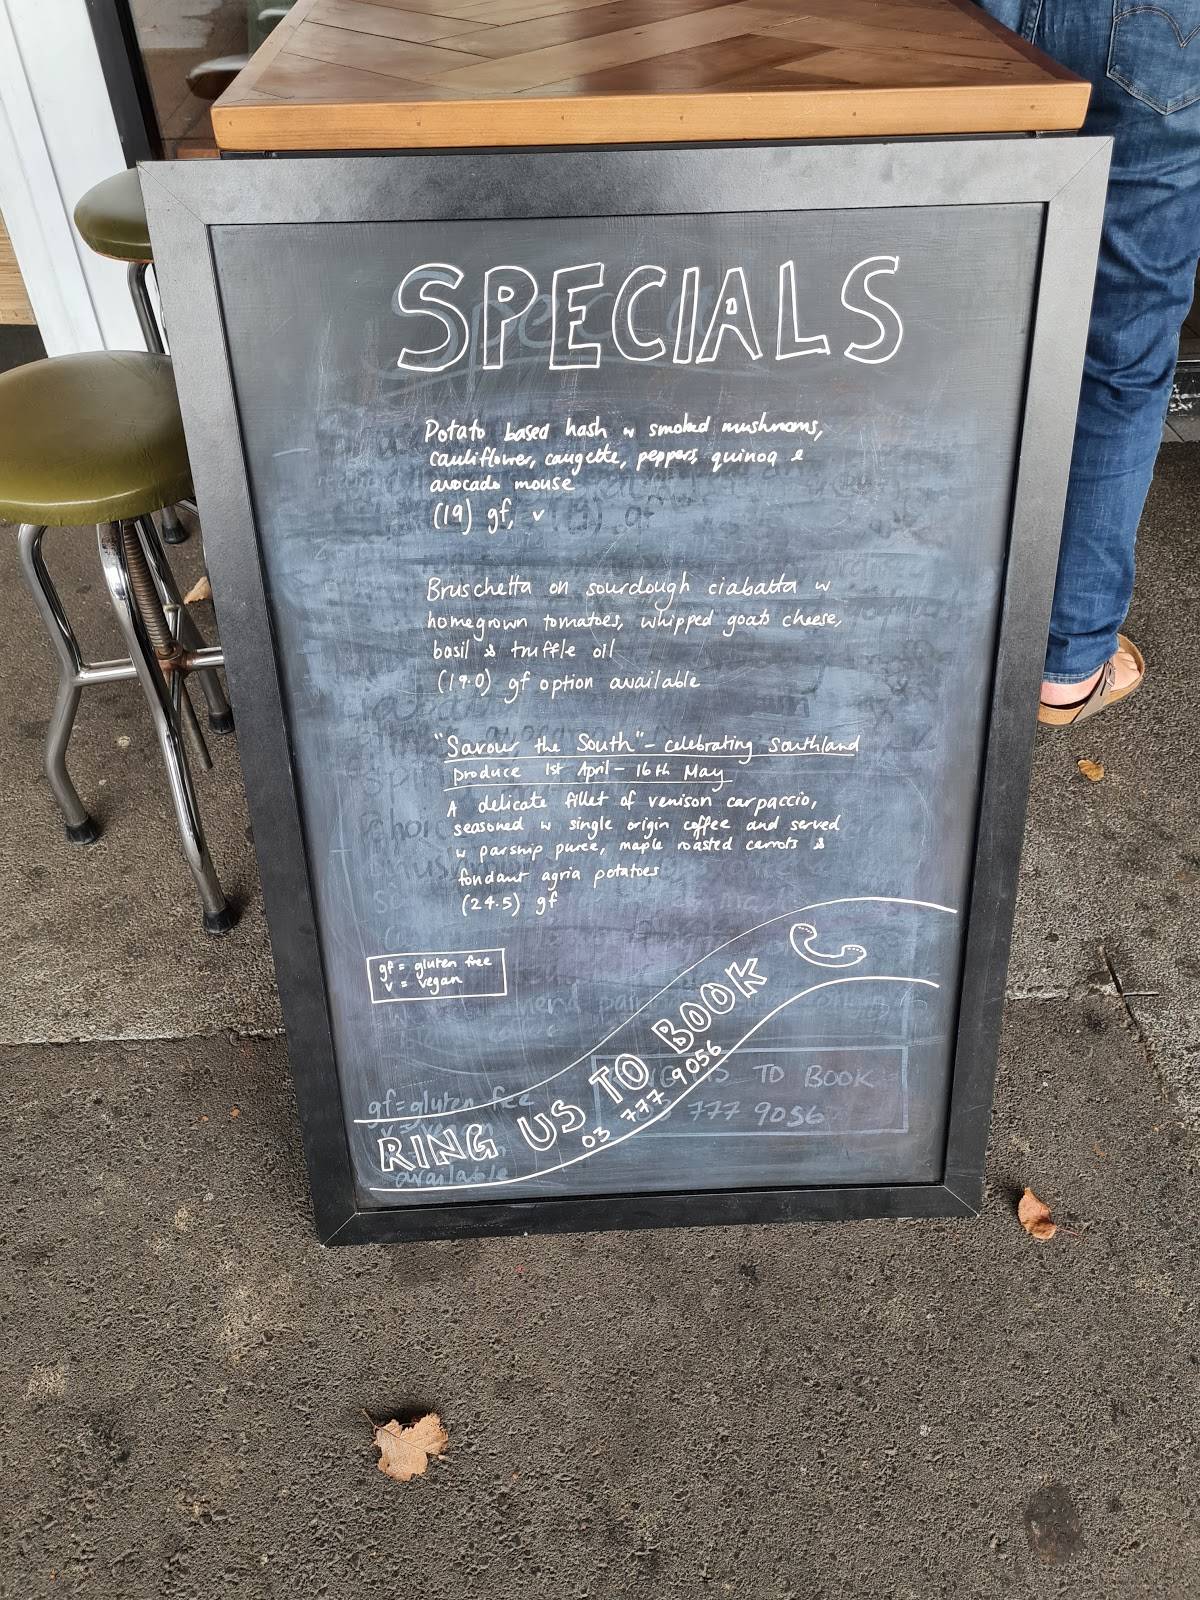 SPECIALS
Potato based hash w smoked mushrooms,
cauliflower, caugette, peppers, quinoa &
avocado mouse
(19) gf, v
Bruschetta on sourdough ciabatta w
homegrown tomatoes, whipped goats cheese,
basil & truffle oil
(19.0) gf option available
"Savour the South" - celebrating Southland
produce 1st April - 16th May
A delicate fillet of venison carpaccio,
seasoned w single origin coffee and served
w parship puree, maple roasted carrots &
fondant agria potatoes
(24.5) gf
gf = gluten free
v = vegan
RING US TO BOOK
03 777 9056
gf = gluten free
v = vegan
available
TO BOOK
777 9056